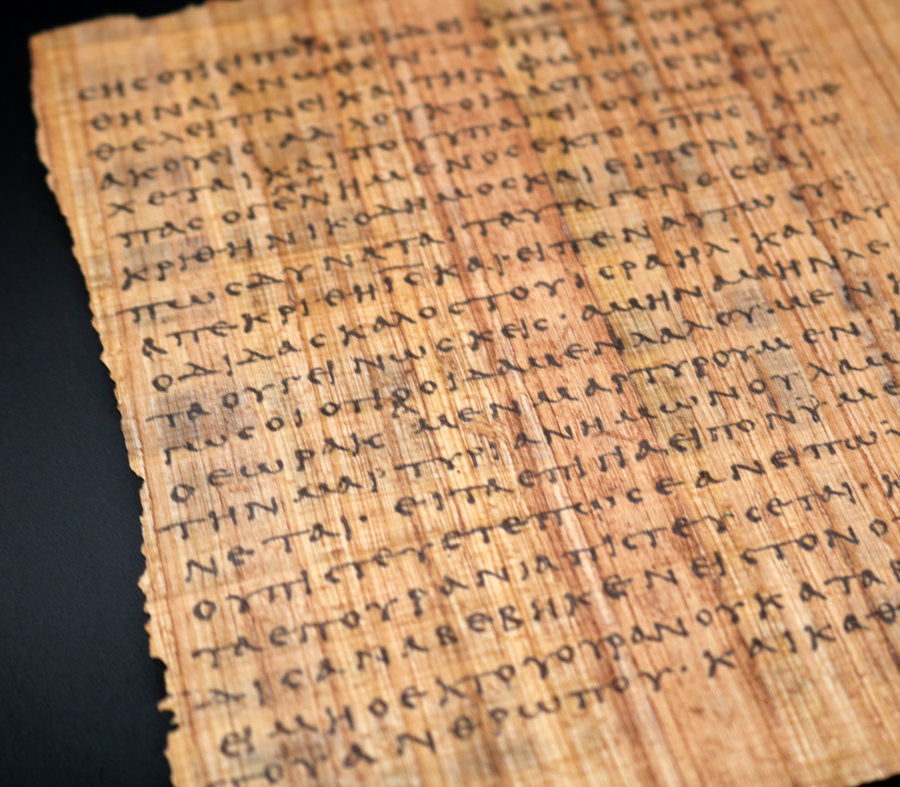 ϹΗϹΟΤΙΕΙΠΟ
ΘΗΝΑΙΑΝΩΘΕΝ
ΘΕΛΕΙΠΝΕΙΚΑΙΤΗΝΦΩΝΗΝ
ΑΚΟΥΕΙϹΑΛΛΟΥΚΟΙΔΑϹΠΟΘΕΝΕΡ
ΧΕΤΑΙΚΑΙΠΟΥΥΠΑΓΕΙ·ΟΥΤΩϹΕϹΤΙ
ΠΑϹΟΓΕΓΕΝΝΗΜΕΝΟϹΕΚΤΟΥΠΝϹΑΠΕ
ΚΡΙΘΗΝΙΚΟΔΗΜΟϹΚΑΙΕΙΠΕΝΑΥΤΩ
ΠΩϹΔΥΝΑΤΑΙΤΑΥΤΑΓΕΝΕϹΘΑΙ·
ΑΠΕΚΡΙΘΗΙϹΚΑΙΕΙΠΕΝΑΥΤΩϹΥΕΙ
ΟΔΙΔΑϹΚΑΛΟϹΤΟΥΙϹΡΑΗΛ·ΚΑΙΤΑΥ
ΤΑΟΥΓΕΙΝΩϹΚΕΙϹ·ΑΜΗΝΑΜΗΝΛΕ
ΓΩϹΟΙΟΤΙΟΟΙΔΑΜΕΝΛΑΛΟΥΜΕΝ
ΟΕΩΡΑΚΑΜΕΝΜΑΡΤΥΡΟΥΜΕΝ·
ΤΗΝΜΑΡΤΥΡΙΑΝΗΜΩΝΟΥΛΑΜ
ΝΕΤΑΙ·ΕΙΤΑΕΠΙΓΙΑΕΙΠΟΝΥΜΕ
ΟΥΠΙϹΤΕΥΕΤΕΠΩϹΕΑΝΕΙΠΩΥ
ΤΑΕΠΟΥΡΑΝΙΑΠΙϹΤΕΥϹΕΤΑΙ·Κ
ΔΙϹΑΝΑΒΕΒΗΚΕΝΕΙϹΤΟΝΟΥ
ΕΙΜΗΟΕΚΤΟΥΟΥΡΑΝΟΥΚΑΤΑΒ
ΤΟΥΑΝΘΡΩΠΟΥ·ΚΑΙΚΑΘ